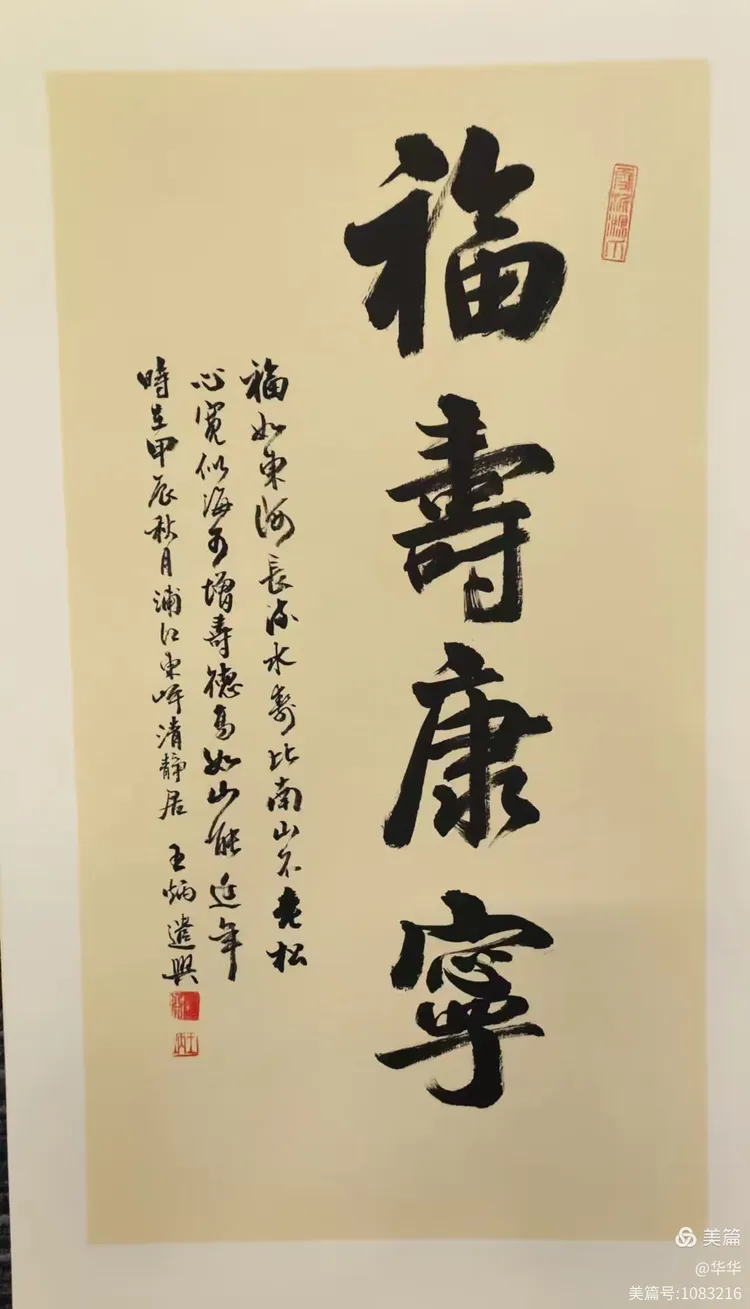 福壽康寧
福如東海長流水壽比南山不老松
心寬似海可增壽德高如山能延年
時在甲辰秋月浦江東坪清靜居 王炳遣興
美篇
@华华
美篇号:1083216